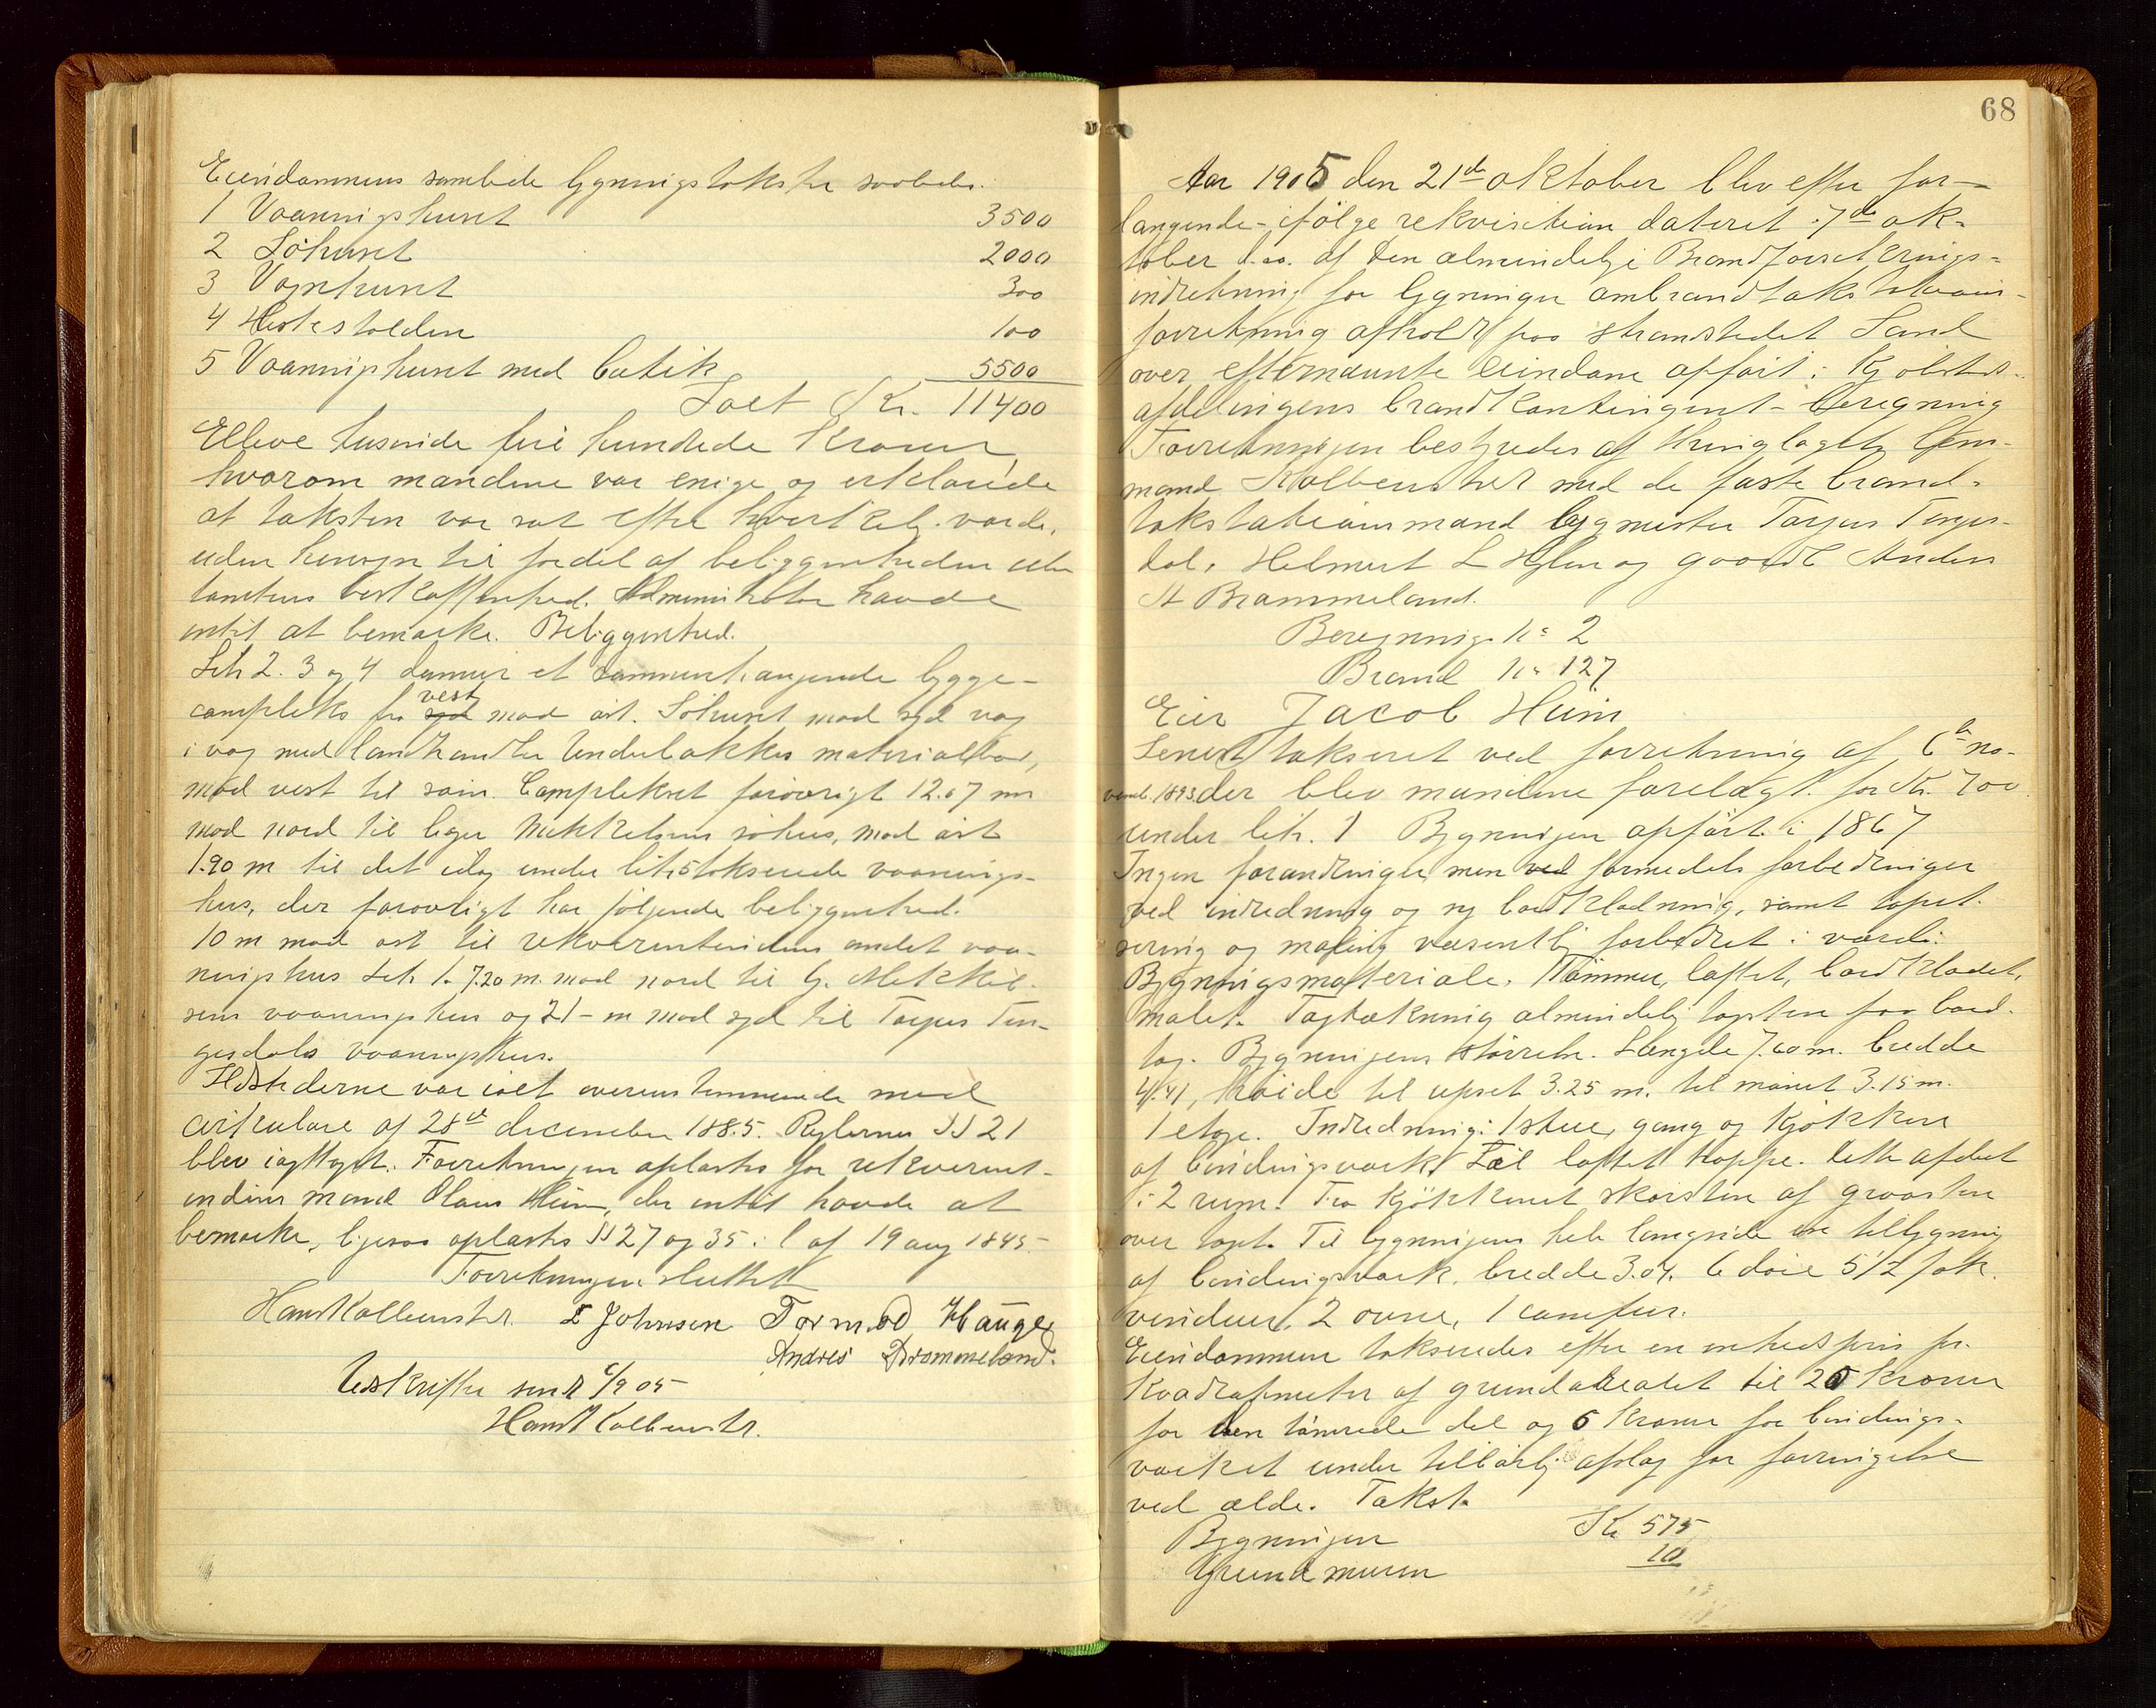 Eiendommens samlede bygningstakster saaledes.
1 Vaaningshuset 3500
2 Söhuset 2000
3 Vognhuset 300
4 Hestestalden 100
5 Vaaningshuset med butik 5500
Ialt Kr. 11400
Elleve tusende fire hundrede Kroner,
hvorom mændene var enige og erklærede
at taksten var sat efter virkelig værdi,
uden hensyn til fordel af beliggenheden eller
tomtens beskaffenhed. havde
intet at bemærke. Beliggenhed.
Litr 2. 3 og 4 danner et sammenhængende bygge-
kompleks fra syd vest mod öst. Söhuset mod syd væg
i væg med landhandler Underbakkes materialbod,
mod vest til söin. Complekset forövrigt 12.07 m
mod nord til söhus, mod öst
1.90 m til det idag under litr 5 takserede vaanings-
hus, der forövrigt har fölgende beliggenhed.
10 m mod öst til rekvirentindens andet vaa-
ningshus Litr 1. 7.20 m. mod nord til G. Mekkel-
sens vaaningshus og 21 - m mod syd til Torjus Ten-
gesdals vaaningshus.
Ildstederne var ialt overensstemmende med
cirkulære af 28de december 1885. Reglerne §§ 21
blev iagttaget. Forretningen oplæstes for rekvirent-
indens mand Olaus Heim, der intet havde at
bemærke, ligesaa oplæstes §§ 27 og 35 i l af 19 aug 1845.
Forretningen sluttet
Hans Kolbenstr. L Johnsen Tormod Hauge
Andres Drommeland.
Udskrifter sendt 6/9 05
Hans Kolbenstr.
68
Aar 1905 den 21de oktober blev efter for-
langende - ifölge rekvisition dateret 7de ok-
tober d.a. af Den almindelige Brandforsikrings-
indretning for bygninger ombrandtakstations-
forretning afholdt paa strandstedet Sand
over efternævnte eiendom opfört i Kjöbsteds-
afdelingens brandkontingent - beregning
Forretningen bestyredes af thinglagets lens-
mand Kolbenstvedt med de faste brand-
takstationsmænd bygmester Torjus Tenges-
dal, Helmert L Hylen og gaardb Anders
A Brommeland.
Beregnings No 2
Brand No 127
Eier Jacob Heim
Senest takseret ved forretning af 6te no-
vemb. 1893 der blev mændene forelagt. for Kr. 700
under litr. 1 Bygningen opfört i 1867
Ingen forandringer, men ved formedels forbedringer
ved indredning og ny bordklædning, samt tapet-
sering og maling væsentlig forbedret i værdi.
Bygningsmateriale. Tömmer, loftet, bordklædet,
malet. Tagtækning almindelig tagsten paa bord-
tag. Bygningens störrelse. Længde 7.60 m. bredde
4.41, höide til upset 3.25 m. til mönet 3.15 m.
1 etage. Indredning: 1 stue, gang og kjökken
af bindingsværk. Til loftet trappe. dette afdelt
i 2 rum. Fra kjökkenet skorsten af graasten
over taget. Til bygningens hele langside en tilbygning
af bindingsværk, bredde 3.04. 6 döre 5 1/2 fok.
vinduer. 2 ovne, 1 comfur.
Eiendommen takseredes efter en enhedspris pr.
Kvadratmeter af grundarealet til 20 kroner
for den tömrede del og 6 kroner for bindings-
værket under tilbörlig afslag for forringelse
ved ælde. Takst.
Bygningen Kr 575
Grundmuren 10